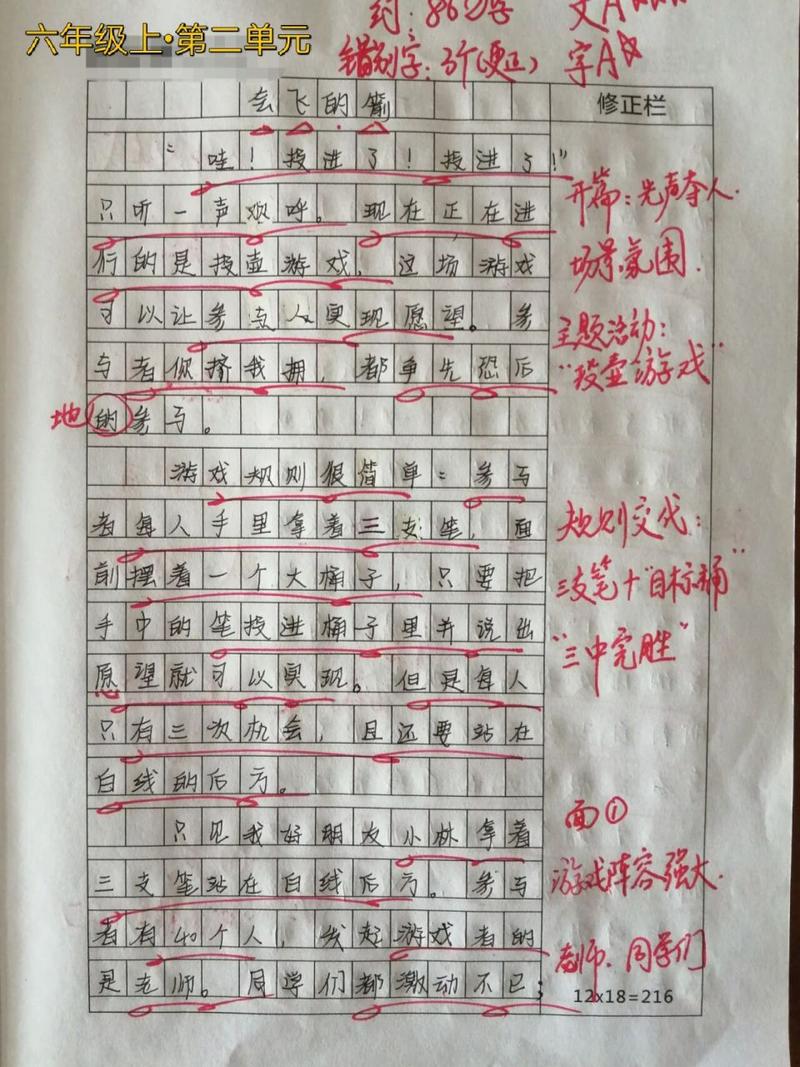 六年级上·第二单元
约：860字 文A
错别字：3个（更正） 字A
会飞的箭
修正栏
“哇！投进了！投进了！”
只听一声欢呼。现在正在进
行的是投壶游戏，这场游戏
可以让参与人实现愿望。参
与者你挤我拥，都争先恐后
的参与。
地
游戏规则很简单：参与
者每人手里拿着三支笔，面
前摆着一个大桶子，只要把
手中的笔投进桶子里并说出
愿望就可以实现。但是每人
只有三次机会，且还要站在
白线的后方。
只见我好朋友小林拿着
三支笔站在白线后方。参与
者有40个人，发起游戏者的
是老师。同学们都激动不已；
12x18=216
开篇：先声夺人.
场景氛围.
主题活动：
“投壶游戏”
规则交代：
三支笔+“目标桶”
“三中完胜”
面①
游戏阵容强大.
老师、同学们